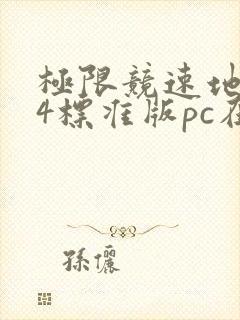 極限競速地
4標准版pc在
孫儷